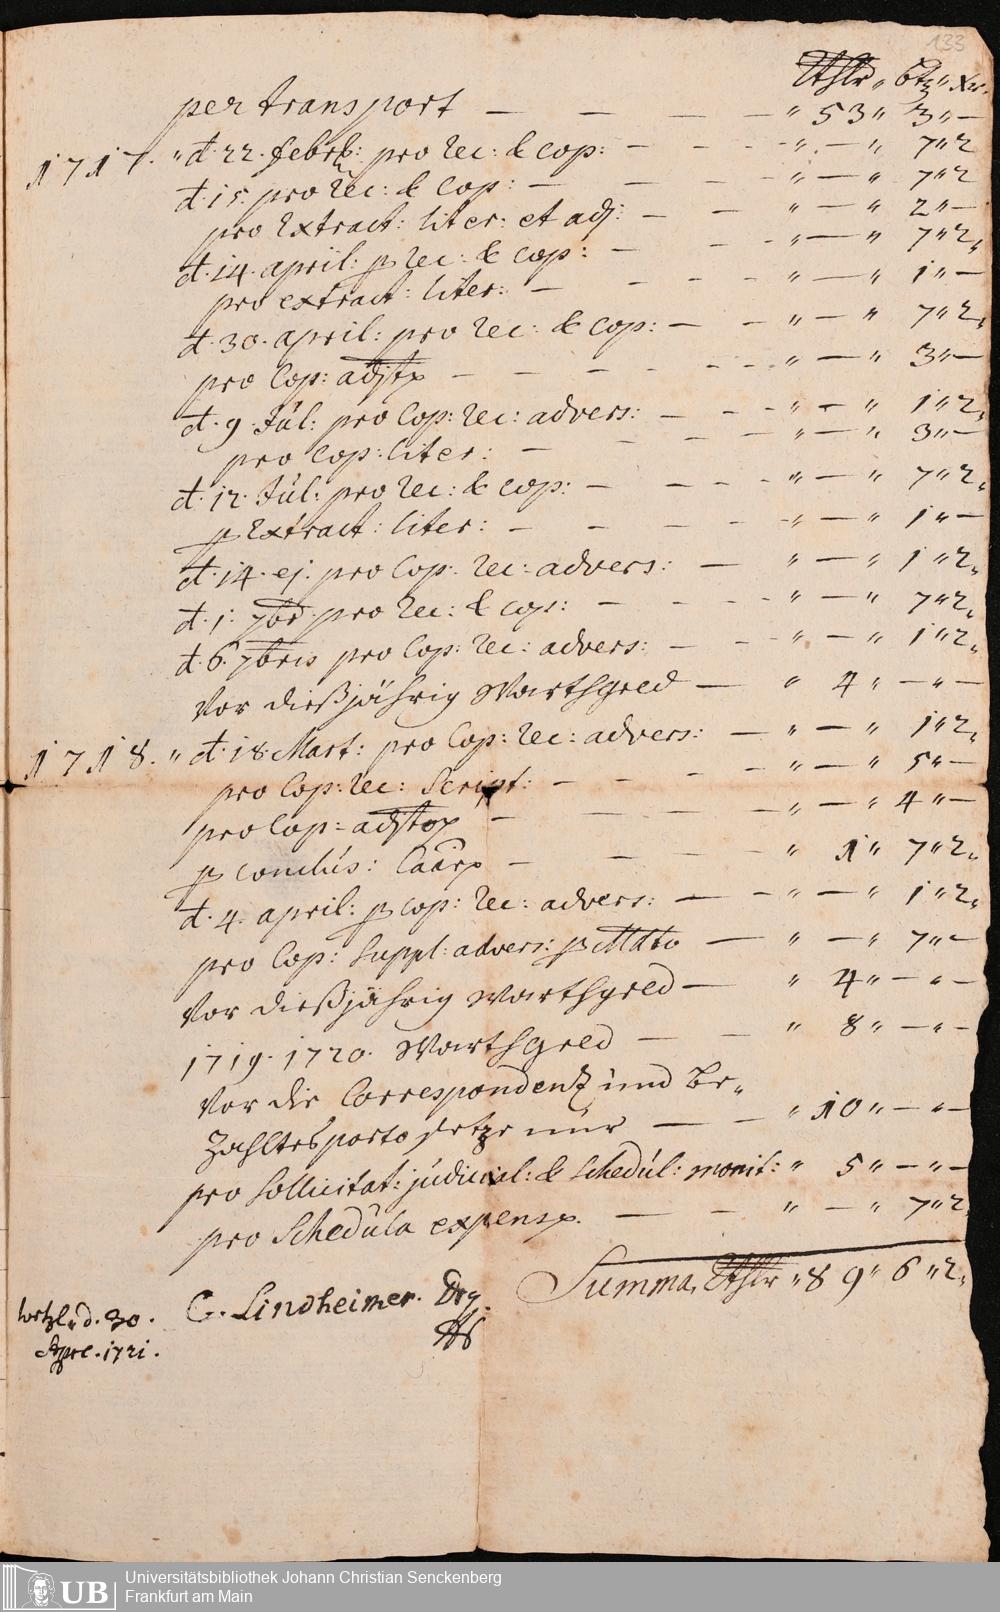 133
Rthlr " btz " Xr.
per transport — — — — " 53 " 3 " —
1717. " d. 22. febr: pro rec: & cop: — — — " — " 7 " 2
d. 15. pro rec: & cop: — — — " — " 7 " 2
pro Extract: liter: et adj: — — " — " 2 " —
d. 14. april: p rec: & cop: — — — " — " 7 " 2.
pro extract: liter: — — — — " — " 1 " —
d. 30. april: pro rec: & cop: — — " — " 7 " 2.
pro Cop: adjtp — — — — — — " — " 3 " —
d. 9. Júl: pro Cop: rec: advers: — — — " — " 1 " 2.
pro Cop: liter: — — — — " — " 3 " —
d. 12. Júl: pro rec: & cop: — — — — " — " 7 " 2.
p Extract: liter: — — — — " — " 1 " —
d. 14. ej. pro Cop: rec: advers: — — " — " 1 " 2.
d. 1. 7br pro rec: & cop: — — — — " — " 7 " 2.
d. 6. 7bris pro Cop: rec: advers: — — — " — " 1 " 2.
Vor dießjährig Warthgeld — " 4 " — " —
1718. " d. 18. Mart: pro Cop: rec: advers: — — " — " 1 " 2.
pro Cop: rec: Script: — — — — " — " 5 " —
pro Cop: adjtop — — — — " — " 4 " —
p conclús: Caúsp — — — — " 1 " 7 " 2.
d. 4. april: p cop: rec: advers: — — " — " 1 " 2.
pro Cop: Suppl: advers: p Mdto — " — " 7 " —
Vor dießjährig Warthgeld — " 4 " — " —
1719. 1720. Warthgeld — — " 8 " — " —
Vor die Correspondentz und Be-
zahltes porto setze nur — — " 10 " — " —
pro Sollicitat: júdicial: & Schedúl: monit: " 5 " — " —
pro Schedúla expensp. — — " — " 7 " 2.
Summa, Rthlr " 89 " 6 " 2.
Wetzl. d. 30. C. Lindheimer. Drg.
Apre. 1721.
Universitätsbibliothek Johann Christian Senckenberg
Frankfurt am Main
UB